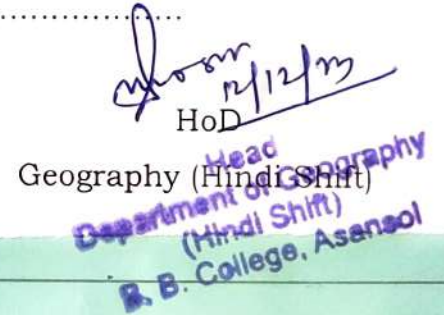 12/12/23
HoD
Geography (Hindi Shift)
Head
Department of Geography
(Hindi Shift)
B. B. College, Asansol